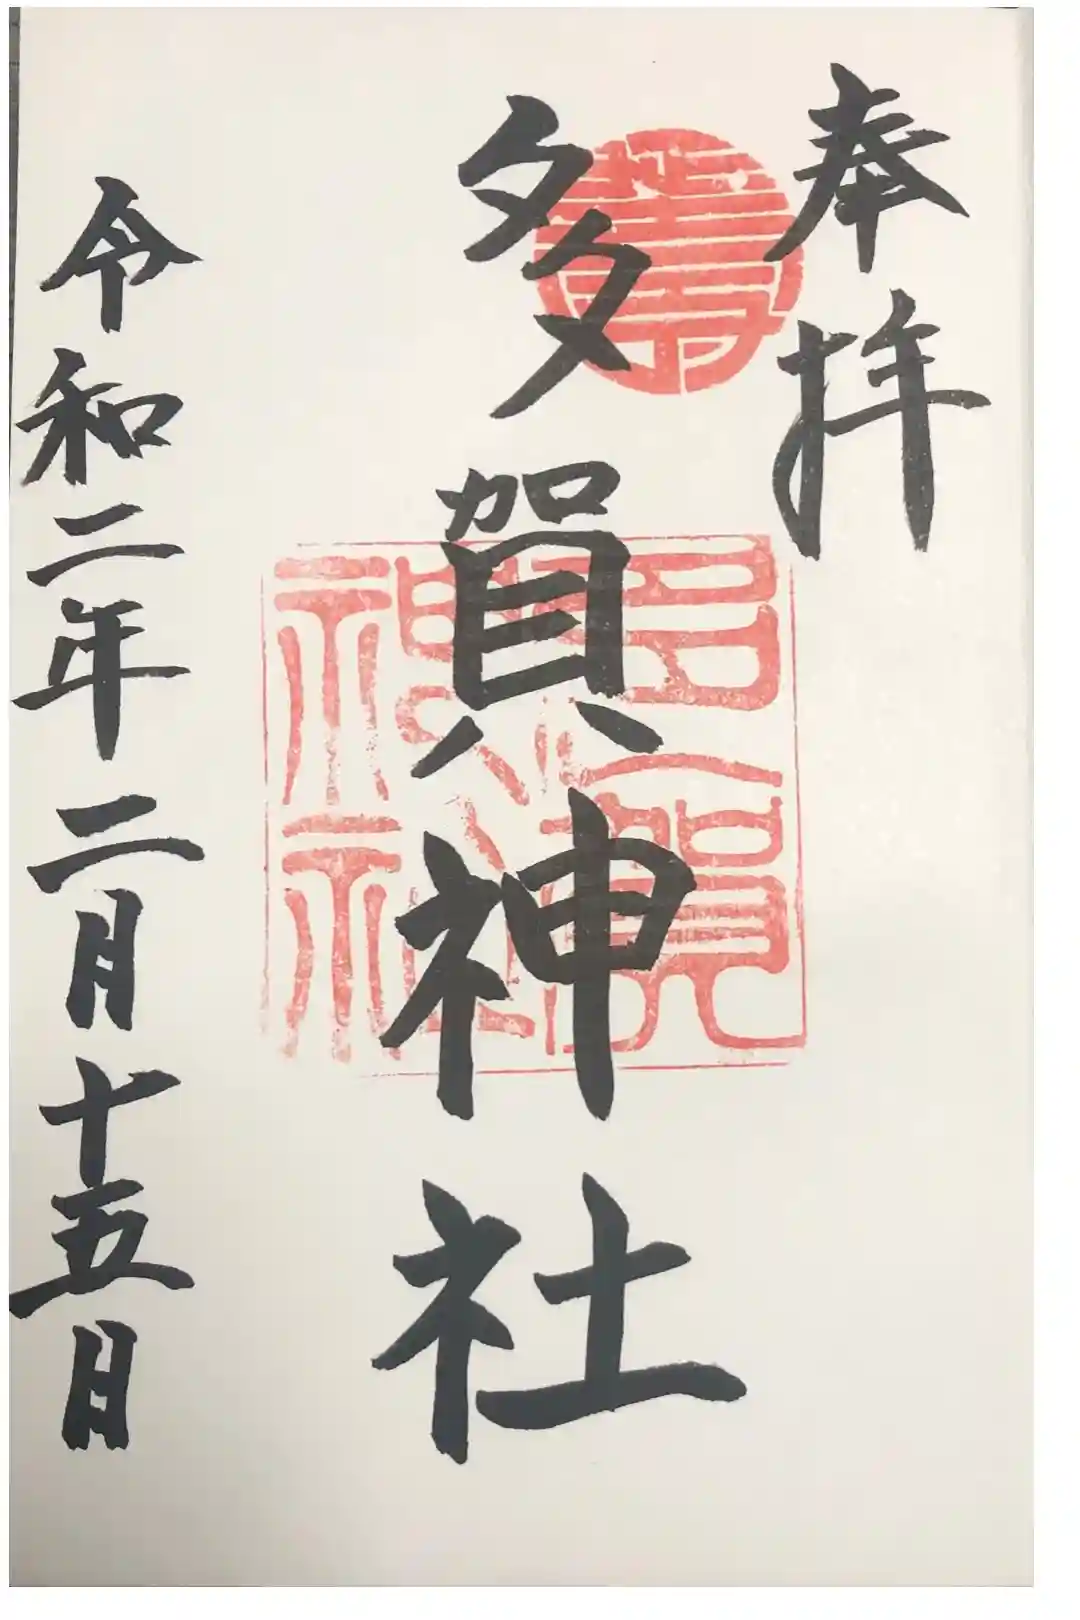 奉拝
多賀神社
令和二年二月十五日
多賀
神社